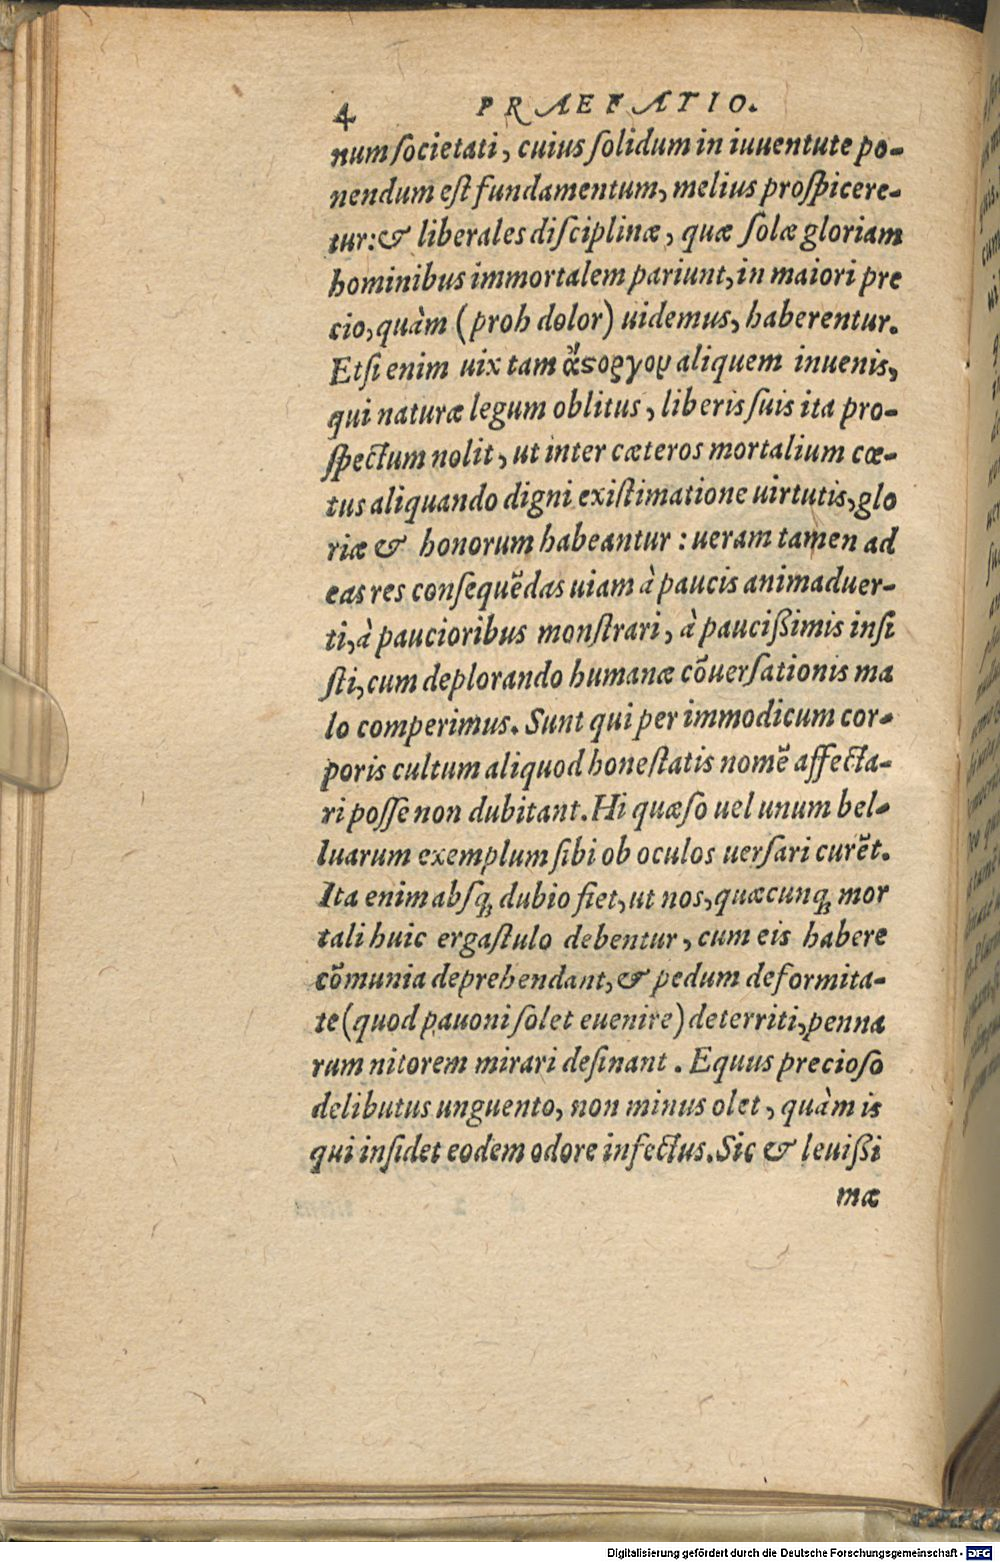 4 PRAEFATIO.
num ſocietati, cuius ſolidum in iuuentute po-
nendum eſt fundamentum, melius proſpicere-
tur: & liberales diſciplinæ, quæ ſolæ gloriam
hominibus immortalem pariunt, in maiori pre
cio, quàm (proh dolor) uidemus, haberentur.
Etſi enim uix tam ἄςοργον aliquem inuenis,
qui naturæ legum oblitus, liberis ſuis ita pro-
ſpectum nolit, ut inter cæteros mortalium cœ-
tus aliquando digni exiſtimatione uirtutis, glo
riæ & honorum habeantur: ueram tamen ad
eas res conſequẽdas uiam à paucis animaduer-
ti, à paucioribus monſtrari, à paucißimis inſi
ſti, cum deplorando humanæ cõuerſationis ma
lo comperimus. Sunt qui per immodicum cor-
poris cultum aliquod honeſtatis nomẽ affecta-
ri poſſe non dubitant. Hi quæſo uel unum bel-
luarum exemplum ſibi ob oculos uerſari curẽt.
Ita enim abſq; dubio fiet, ut nos, quæcunq; mor
tali huic ergaſtulo debentur, cum eis habere
cõmunia deprehendant, & pedum deformita-
te (quod pauoni ſolet euenire) deterriti, penna
rum nitorem mirari deſinant. Equus precioſo
delibutus unguento, non minus olet, quàm is
qui inſidet eodem odore infectus. Sic & leuißi
mæ
Digitalisierung gefördert durch die Deutsche Forschungsgemeinschaft - DFG